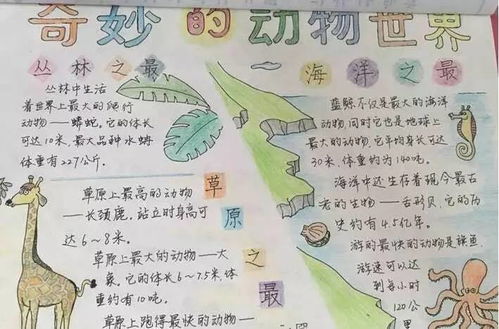 奇妙的动物世界
丛林之最
丛林中生活
着世界上最大的爬行
动物——蟒蛇,它的体长
可达10米,最大品种水蟒
体重有227公斤。
草原之最
草原上最高的动物
——长颈鹿,站立时身高可
达6~8米。
草原上最大的动物——大
象,它的体长6~7.5米,体
重约有10吨。
草原上跑得最快的动物——
海洋之最
蓝鲸不仅是最大的海洋
动物,同时它也是地球上
最大的动物,它平均身长可达
30米,体重约为140吨。
海洋中还生存着现今最古
老的生物——舌形贝,它的历
史约有4.5亿年。
游的最快的动物是旗鱼,
游速可以达
到每小时
120公
里